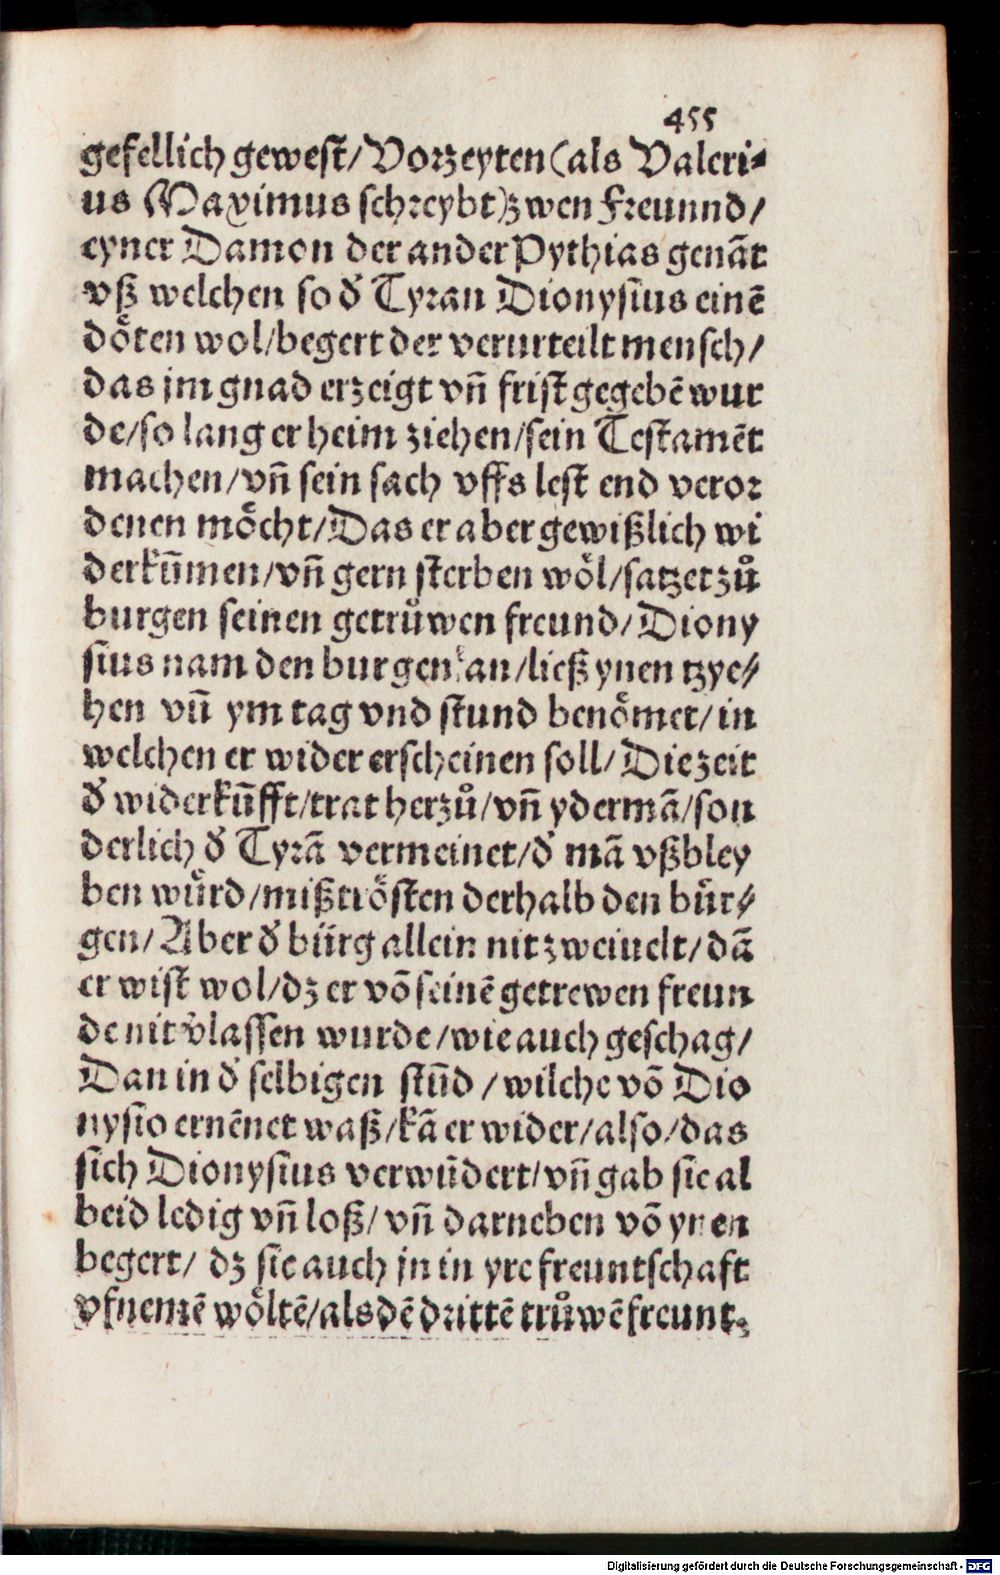 455
gefellich gewest/Vorzeyten(als Valeri⸗
us Maximus schreybt)zwen Freunnd/
eyner Damon der ander Pythias genãt
vß welchen so d̕ Tyran Dionysius einẽ
doͤten wol/begert der verurteilt mensch/
das jm gnad erzeigt vñ frist gegebẽ wur
de/so lang er heim ziehen/sein Testamẽt
machen/vñ sein sach vffs lest end veror
denen moͤcht/Das er aber gewißlich wi
derkũmen/vñ gern sterben woͤl/satzet zuͦ
burgen seinen getruͦwen freund/Diony
sius nam den burgen an/ließ ynen tzye⸗
hen vñ ym tag vnd stund benoͤmet/in
welchen er wider erscheinen soll/Die zeit
d̕ widerkũfft/trat herzuͦ/vñ ydermã/son
derlich d̕ Tyrã vermeinet/d̕ mã vßbley
ben wuͤrd/mißtroͤsten derhalb den buͤr⸗
gen/Aber d̕ buͤrg allein nit zweiuelt/dã
er wist wol/dz er võ seinẽ getrewen freun
de nit v̕lassen wurde/wie auch geschag/
Dan in d̕ selbigen stũd/wilche võ Dio
nysio ernẽnet waß/kã er wider/also/das
sich Dionysius verwũdert/vñ gab sie al
beid ledig vñ loß/vñ darneben võ ynen
begert/dz sie auch jn in yre freuntschaft
vfnemẽ woͤltẽ/als dẽ drittẽ truͦwẽ freunt.
Digitalisierung gefördert durch die Deutsche Forschungsgemeinschaft - DFG